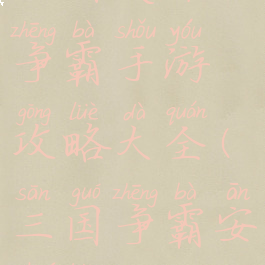 zhēng bà shǒu yóu
争霸手游
gōng lüè dà quán
攻略大全(
sān guó zhēng bà ān
三国争霸安